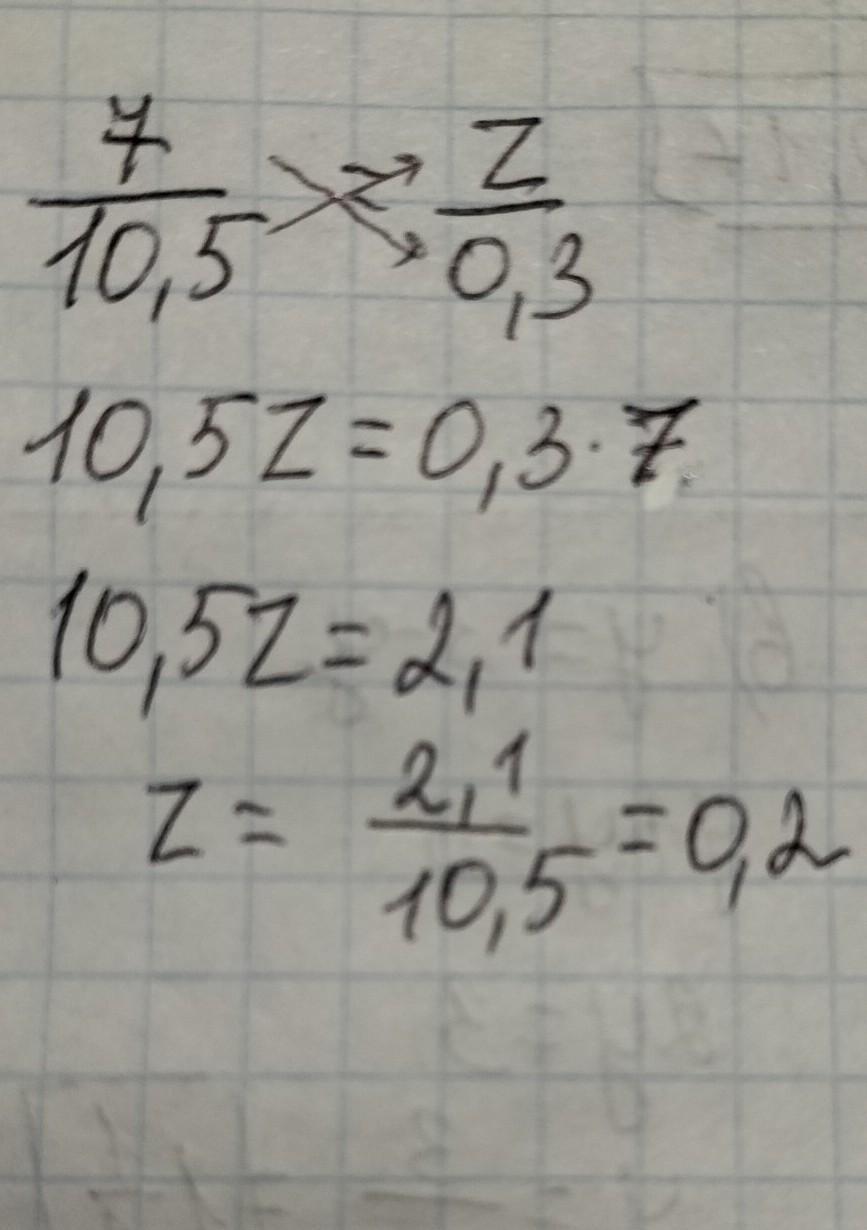 7/10,5 = z/0,3
10,5z = 0,3 · 7
10,5z = 2,1
z = 2,1/10,5 = 0,2